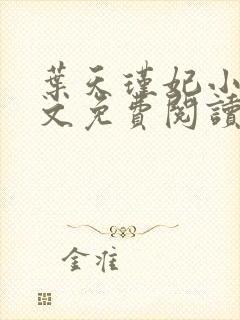 葉天瑾妃小
文免費閱讀
金淮